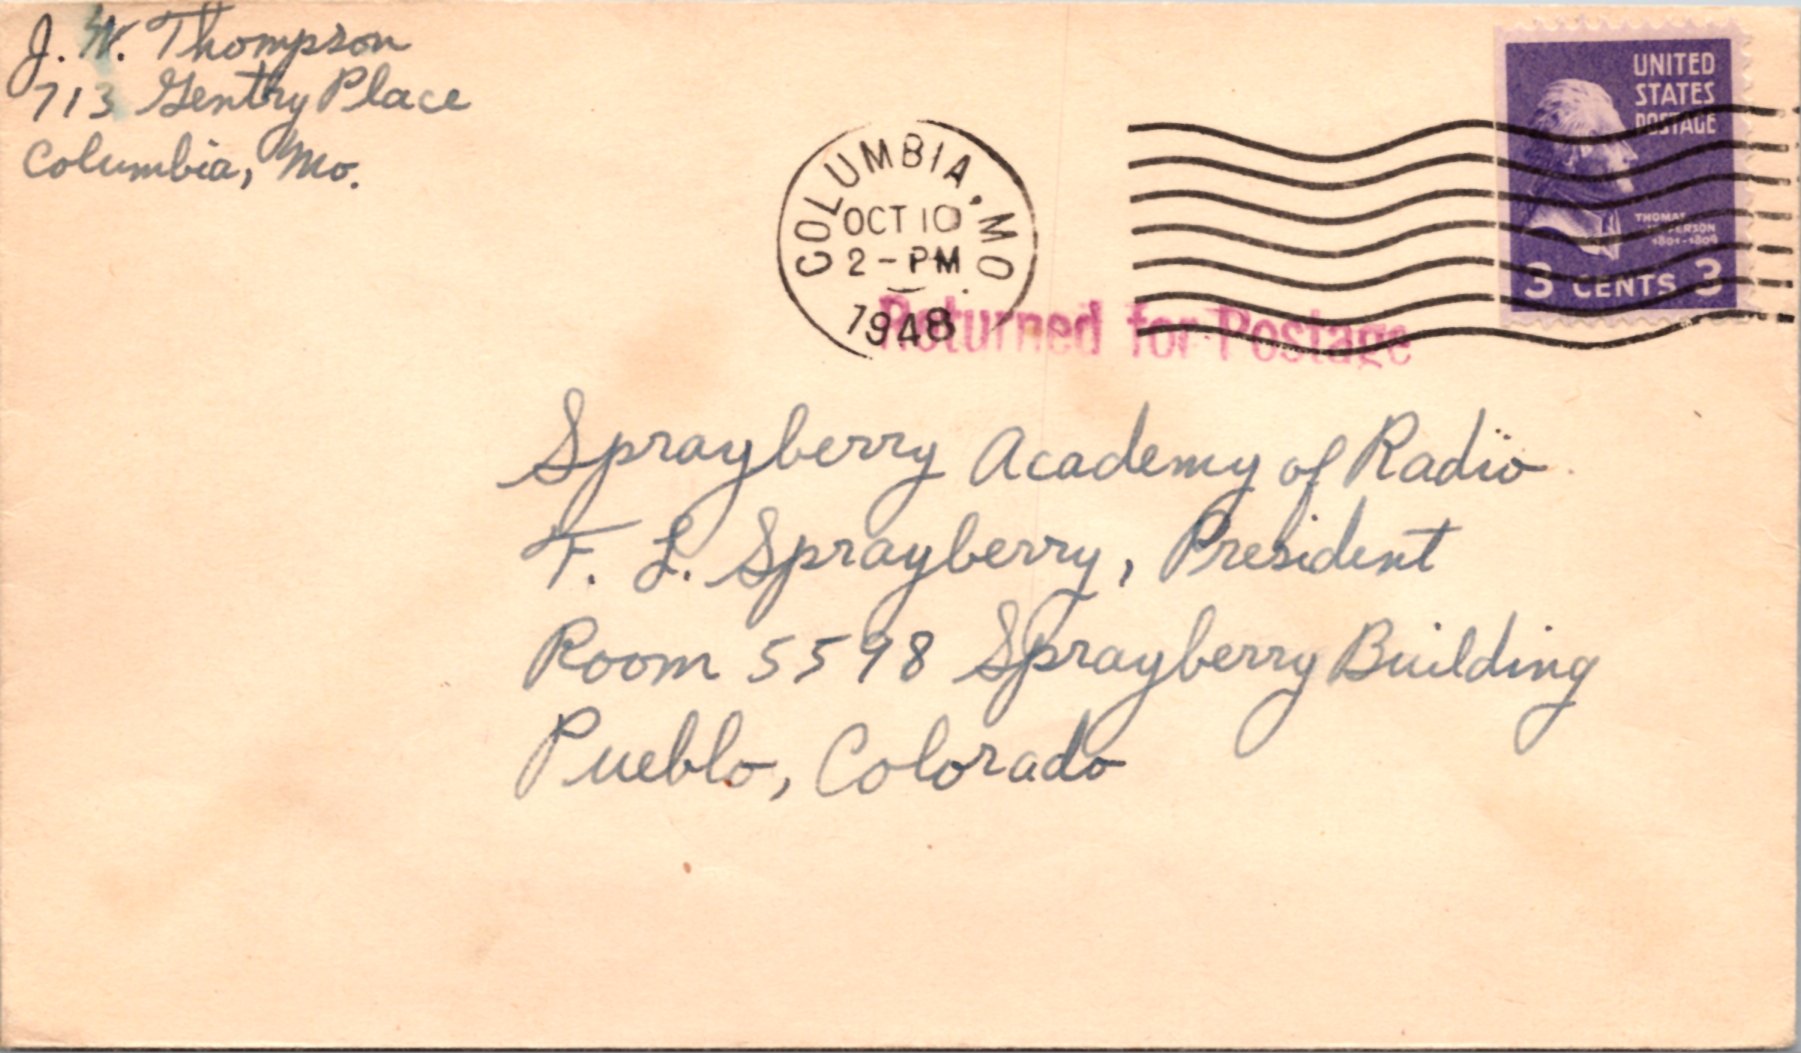 J. W. Thompson
713 Gentry Place
Columbia, Mo.
COLUMBIA, MO.
OCT 10
2 - PM
1948
UNITED
STATES
POSTAGE
THOMAS
JEFFERSON
1801-1809
3 CENTS 3
Returned for Postage
Sprayberry Academy of Radio
F. L. Sprayberry, President
Room 5598 Sprayberry Building
Pueblo, Colorado